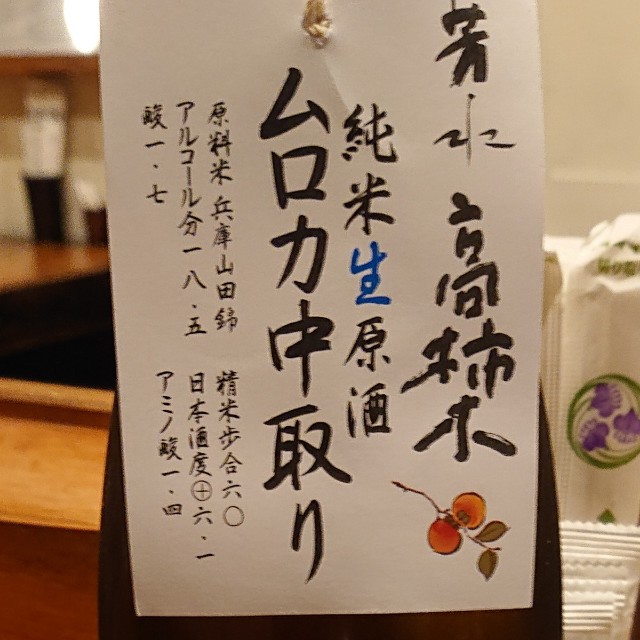 芳水 高柿木
純米生原酒
ムロカ中取り
原料米 兵庫山田錦 精米歩合六〇
アルコール分一八・五 日本酒度⊕六・一
酸一・七 アミノ酸一・四